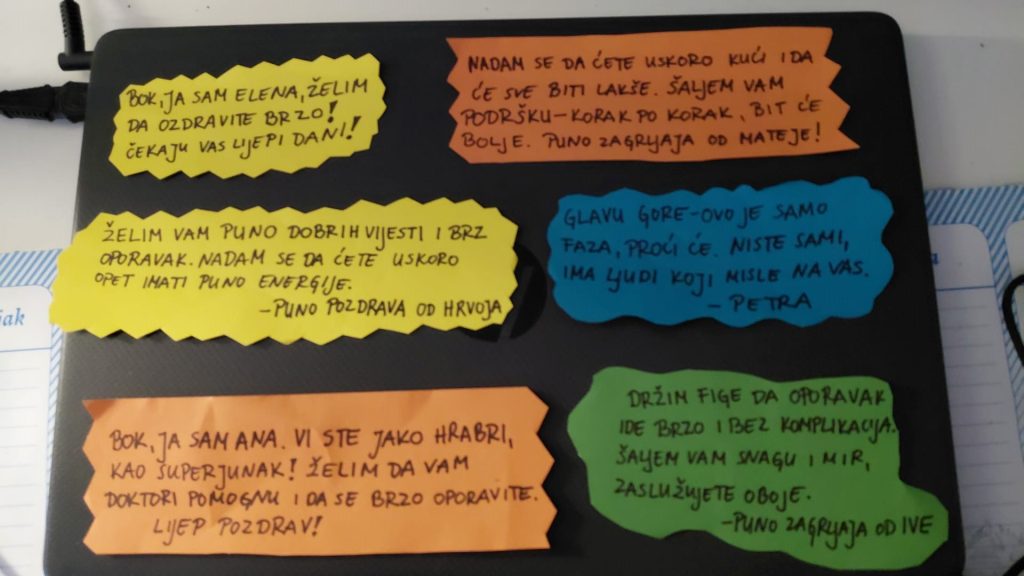 BOK, JA SAM ELENA, ŽELIM
DA OZDRAVITE BRZO!
ČEKAJU VAS LIJEPI DANI!
NADAM SE DA ĆETE USKORO KUĆI I DA
ĆE SVE BITI LAKŠE. ŠALJEM VAM
PODRŠKU - KORAK PO KORAK, BIT ĆE
BOLJE. PUNO ZAGRLJAJA OD MATEJE!
ŽELIM VAM PUNO DOBRIH VIJESTI I BRZ
OPORAVAK. NADAM SE DA ĆETE USKORO
OPET IMATI PUNO ENERGIJE.
-PUNO POZDRAVA OD HRVOJA
GLAVU GORE-OVO JE SAMO
FAZA, PROĆI ĆE. NISTE SAMI,
IMA LJUDI KOJI MISLE NA VAS.
- PETRA
BOK, JA SAM ANA. VI STE JAKO HRABRI,
KAO SUPERJUNAK! ŽELIM DA VAM
DOKTORI POMOGNU I DA SE BRZO OPORAVITE.
LIJEP POZDRAV!
DRŽIM FIGE DA OPORAVAK
IDE BRZO I BEZ KOMPLIKACIJA.
ŠALJEM VAM SNAGU I MIR,
ZASLUŽUJETE OBOJE.
-PUNO ZAGRLJAJA OD IVE